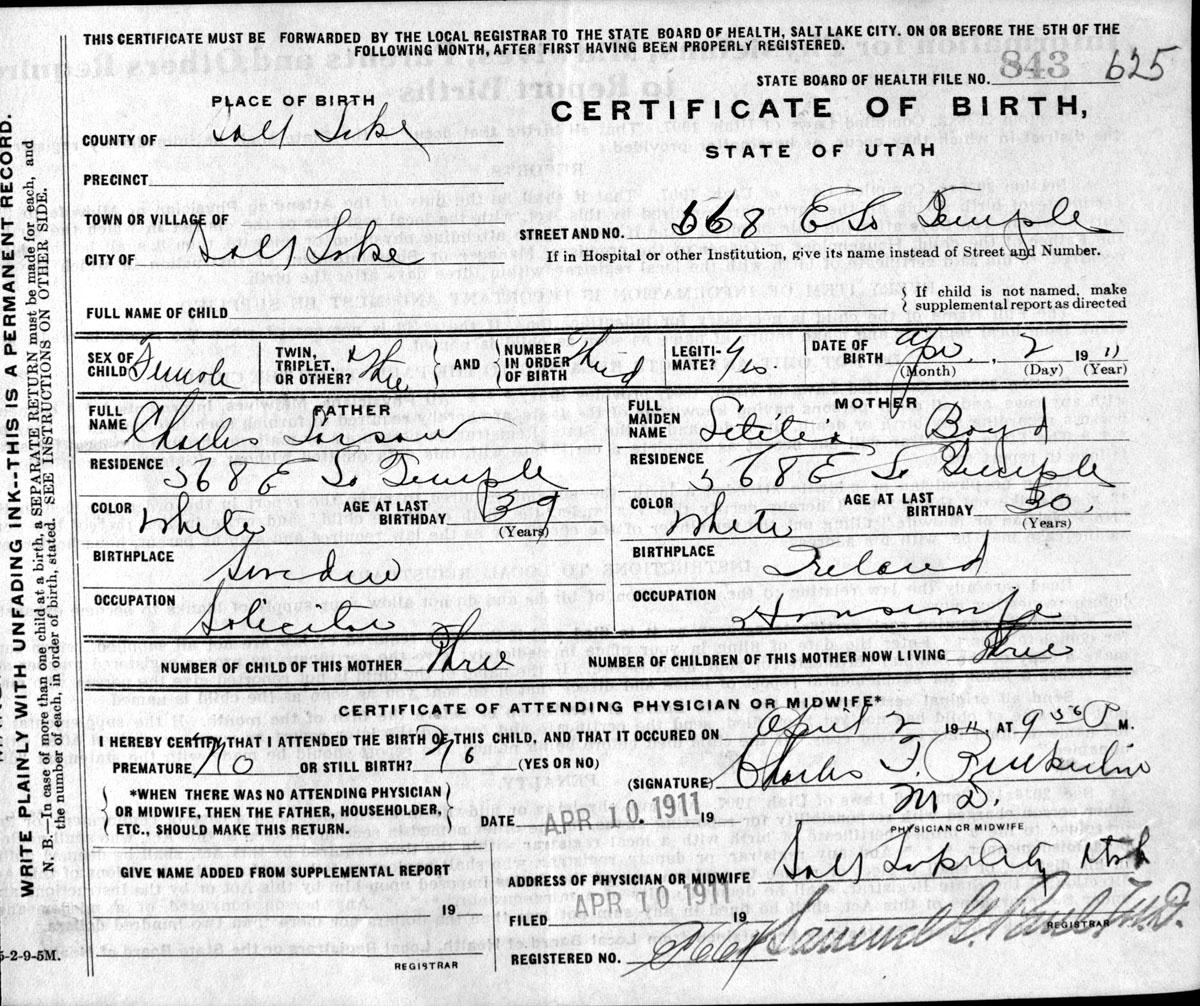 THIS CERTIFICATE MUST BE FORWARDED BY THE LOCAL REGISTRAR TO THE STATE BOARD OF HEALTH, SALT LAKE CITY. ON OR BEFORE THE 5TH OF THE
FOLLOWING MONTH, AFTER FIRST HAVING BEEN PROPERLY REGISTERED.
STATE BOARD OF HEALTH FILE NO. 843 625
PLACE OF BIRTH
CERTIFICATE OF BIRTH,
COUNTY OF Salt Lake
STATE OF UTAH
PRECINCT
TOWN OR VILLAGE OF
STREET AND NO. 668 E So Temple
CITY OF Salt Lake
If in Hospital or other Institution, give its name instead of Street and Number.
FULL NAME OF CHILD
If child is not named, make
supplemental report as directed
SEX OF CHILD Female
TWIN, TRIPLET, OR OTHER?
AND
NUMBER IN ORDER OF BIRTH Third
LEGITIMATE? Yes
DATE OF BIRTH Apr. 2 1911
(Month) (Day) (Year)
FATHER
FULL NAME Charles Larson
RESIDENCE 568 E So Temple
COLOR White
AGE AT LAST BIRTHDAY 39
(Years)
BIRTHPLACE Sweden
OCCUPATION Solicitor
MOTHER
FULL MAIDEN NAME Boyd
RESIDENCE 568 E So Temple
COLOR White
AGE AT LAST BIRTHDAY 30
(Years)
BIRTHPLACE Ireland
OCCUPATION Housewife
NUMBER OF CHILD OF THIS MOTHER Three
NUMBER OF CHILDREN OF THIS MOTHER NOW LIVING Three
CERTIFICATE OF ATTENDING PHYSICIAN OR MIDWIFE*
I HEREBY CERTIFY THAT I ATTENDED THE BIRTH OF THIS CHILD, AND THAT IT OCCURED ON April 2 1911, AT 9 P M.
PREMATURE No OR STILL BIRTH? No (YES OR NO)
(SIGNATURE) Charles F.
M.D.
*WHEN THERE WAS NO ATTENDING PHYSICIAN
OR MIDWIFE, THEN THE FATHER, HOUSEHOLDER,
ETC., SHOULD MAKE THIS RETURN.
DATE APR 10 1911 19
PHYSICIAN OR MIDWIFE
GIVE NAME ADDED FROM SUPPLEMENTAL REPORT
ADDRESS OF PHYSICIAN OR MIDWIFE Salt Lake City Utah
19
FILED APR 10 1911 19
REGISTRAR
REGISTERED NO.
Samuel G. Paul, M.D.
REGISTRAR
5-2-9-5M.
WRITE PLAINLY WITH UNFADING INK--THIS IS A PERMANENT RECORD.
N. B.—In case of more than one child at a birth, a SEPARATE RETURN must be made for each, and
the number of each, in order of birth, stated. SEE INSTRUCTIONS ON OTHER SIDE.